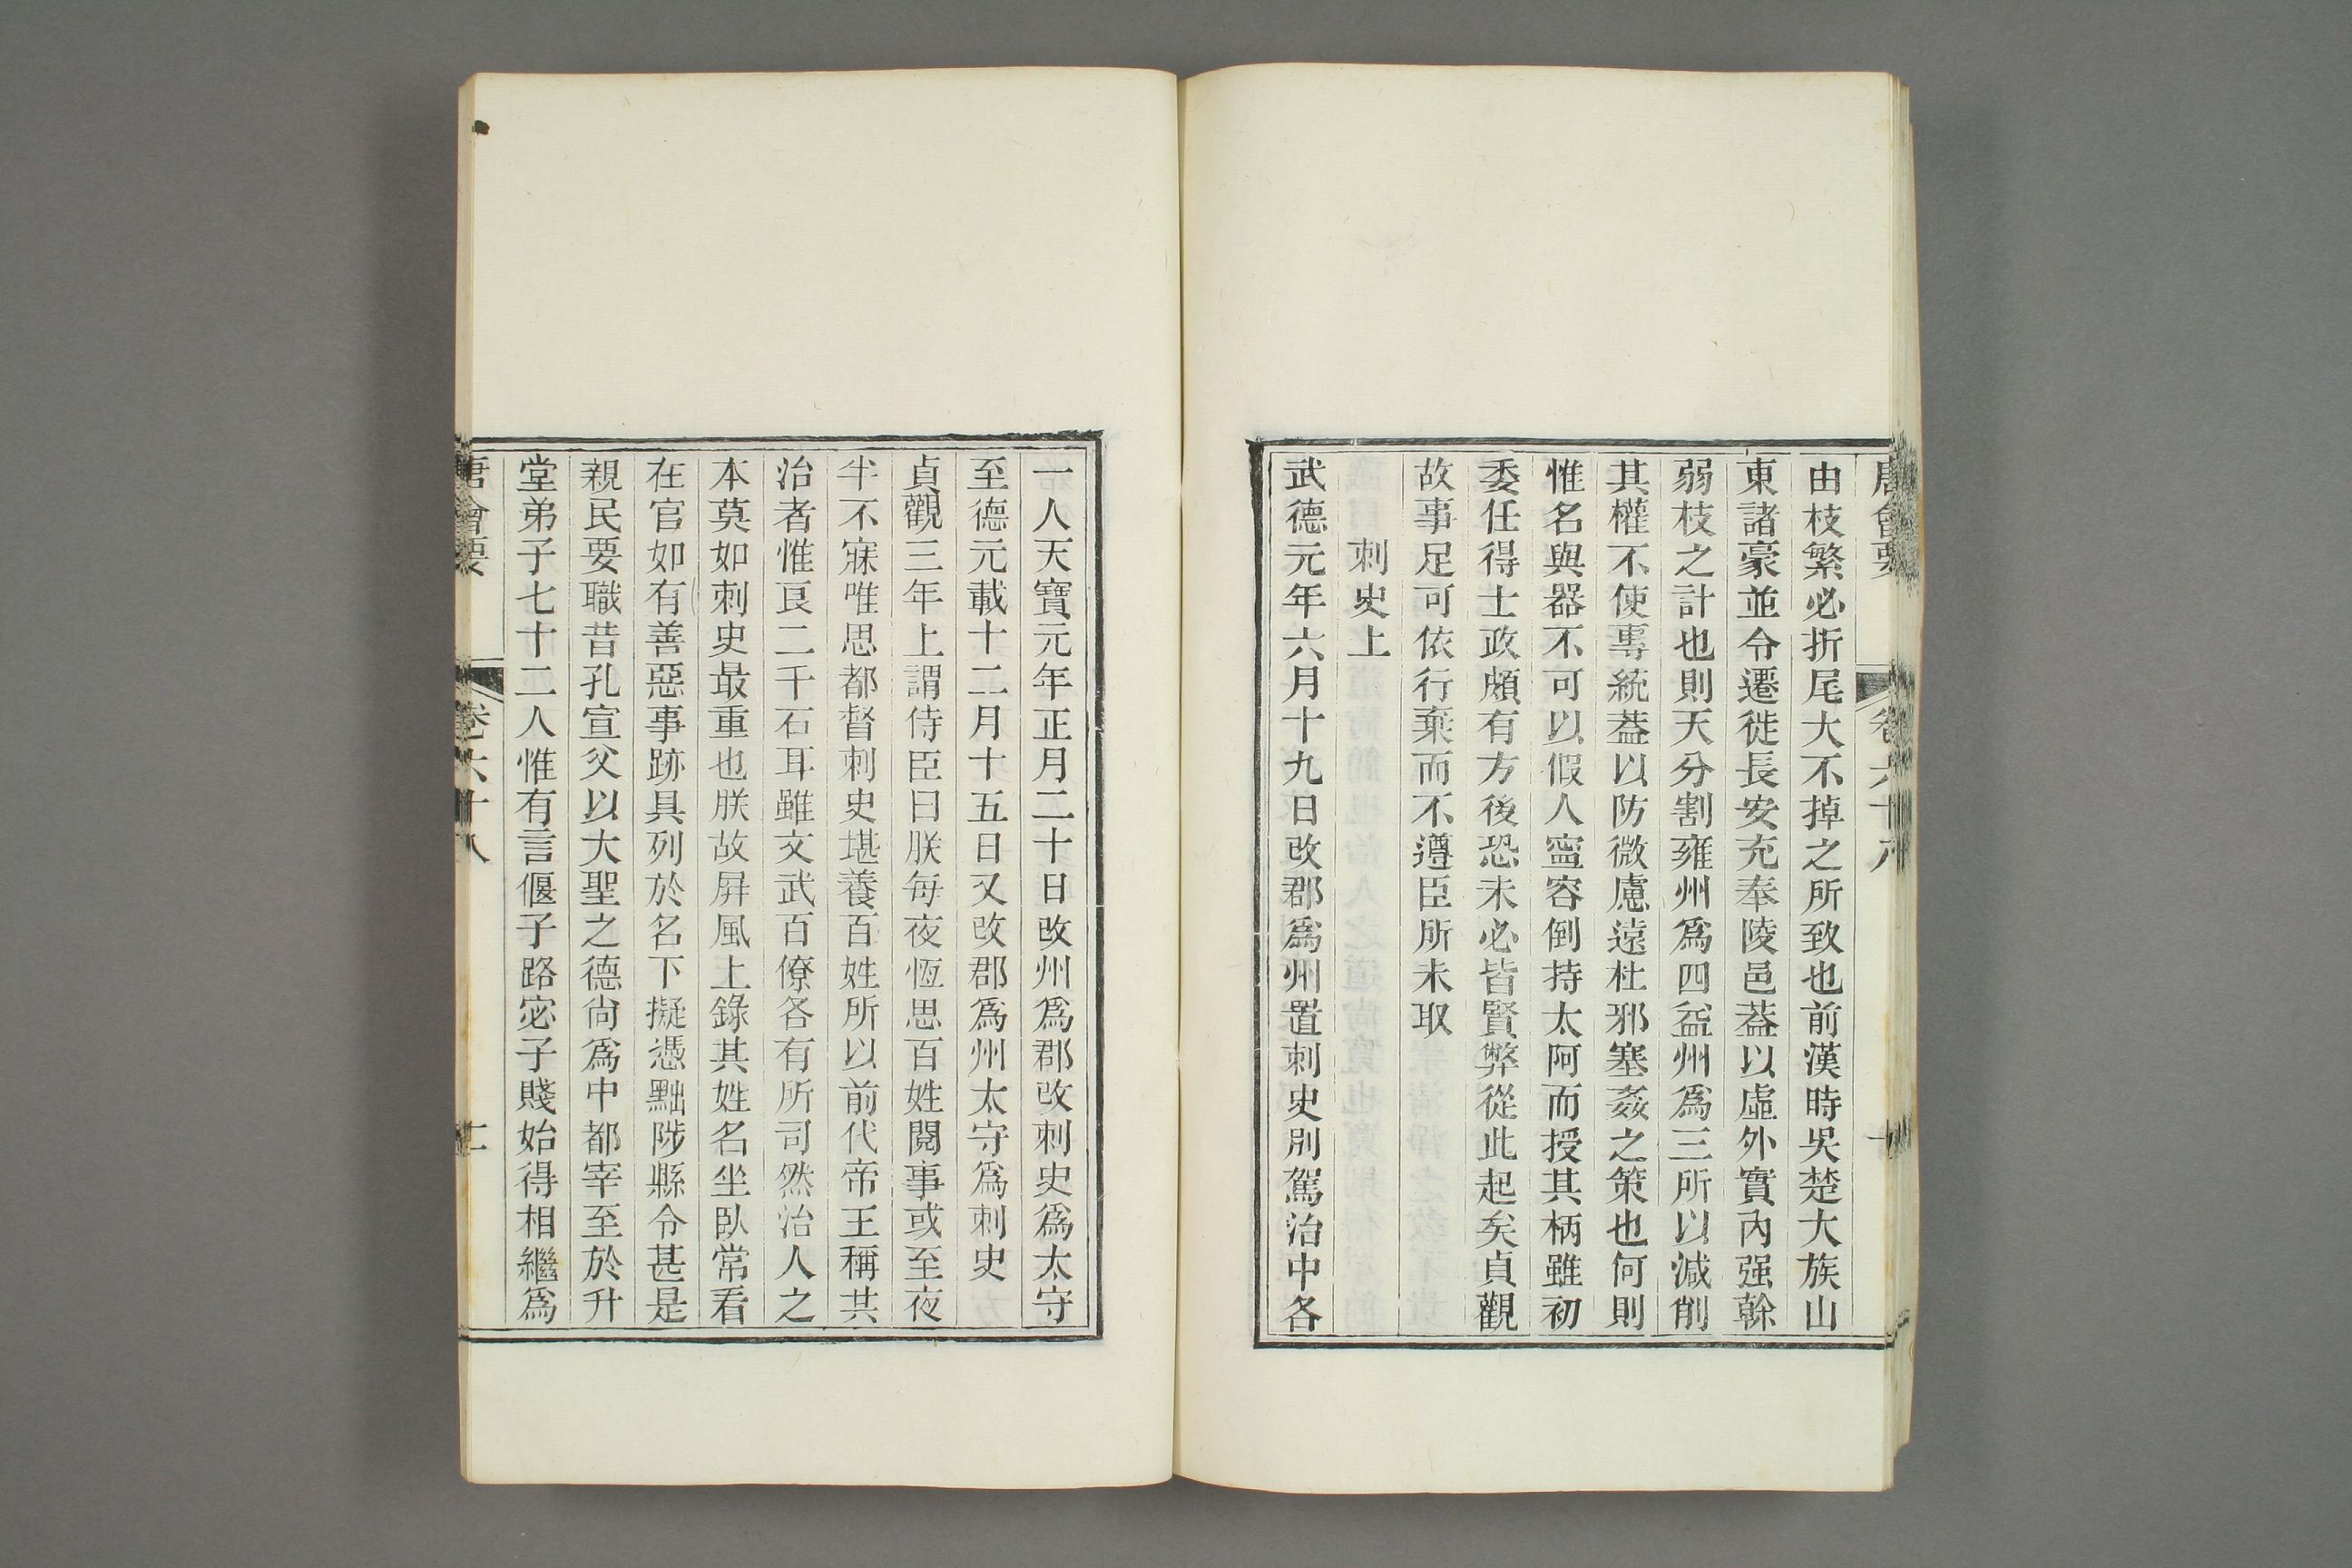 唐會要 卷六十八 十
由枝繁必折尾大不掉之所致也前漢時吳楚大族山
東諸豪並令遷徙長安充奉陵邑蓋以虛外實內强榦
弱枝之計也則天分割雍州爲四益州爲三所以減削
其權不使專統蓋以防微慮遠杜邪塞姦之策也何則
惟名與器不可以假人寍容倒持太阿而授其柄雖初
委任得士政頗有方後恐未必皆賢弊從此起矣貞觀
故事足可依行棄而不遵臣所未取
刺史上
武德元年六月十九日改郡爲州置刺史別駕治中各
一人天寶元年正月二十日改州爲郡改刺史爲太守
至德元載十二月十五日又改郡爲州太守爲刺史
貞觀三年上謂侍臣曰朕每夜恆思百姓閱事或至夜
半不寐唯思都督刺史堪養百姓所以前代帝王稱共
治者惟良二千石耳雖文武百僚各有所司然治人之
本莫如刺史最重也朕故屏風上錄其姓名坐臥常看
在官如有善惡事跡具列於名下擬憑黜陟縣令甚是
親民要職昔孔宣父以大聖之德尙爲中都宰至於升
堂弟子七十二人惟有言偃子路宓子賤始得相繼爲
唐會要 卷六十八 十一